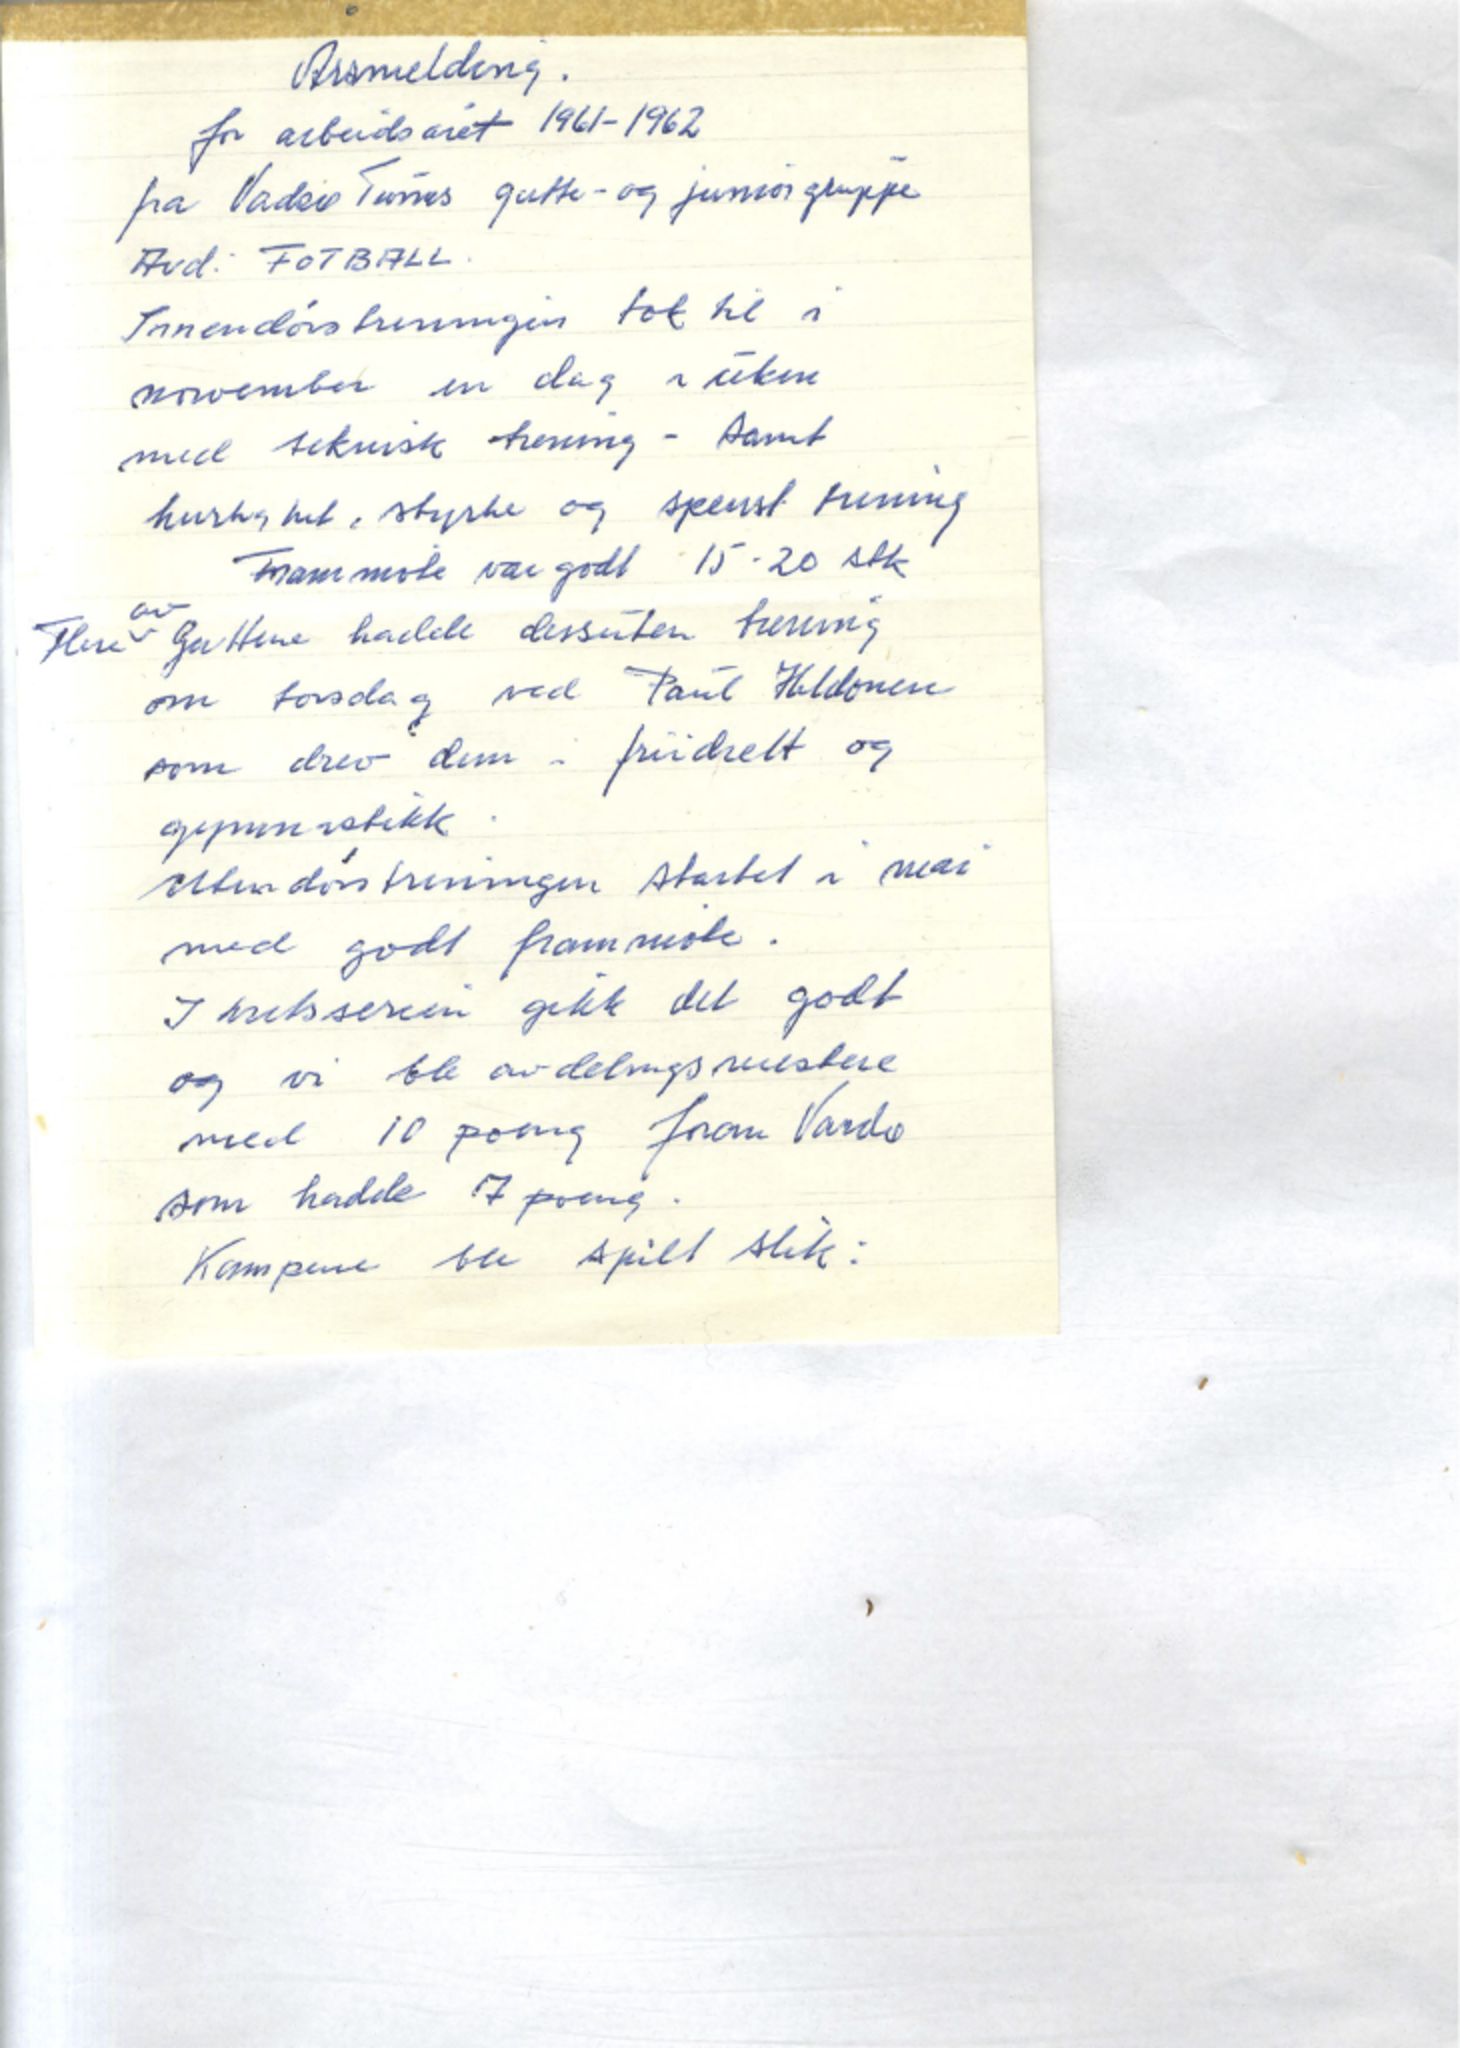 Årsmelding.
for arbeidsåret 1961-1962
fra Vadsø Turns gutte- og juniorgruppe
Avd: FOTBALL.
Innendørstreningen tok til i
november en dag i uken
med teknisk trening - samt
hurtighet, styrke og spenst trening
Frammøte var godt 15-20 stk
Flere av Guttene hadde dessuten trening
om torsdag ved Paul
som drev dem i friidrett og
gymnastikk.
Utendørstreningen startet i mai
med godt frammøte.
I kretsserien gikk det godt
og vi ble avdelingsmestere
med 10 poeng foran Vardø
som hadde 7 poeng.
Kampene ble spilt slik: